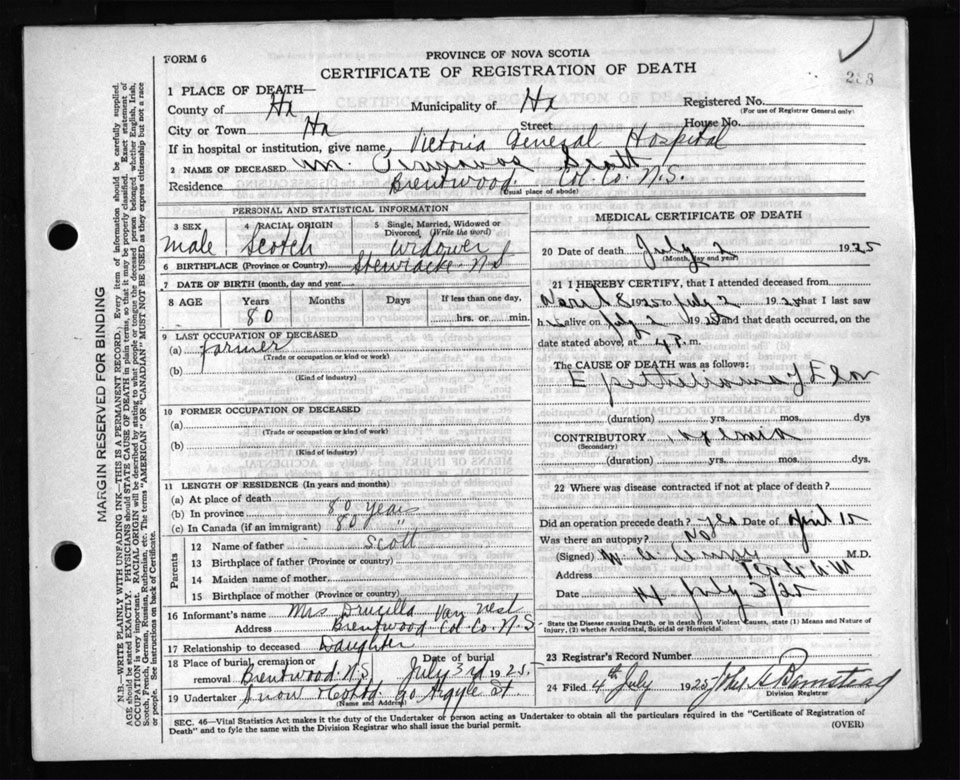 FORM 6
PROVINCE OF NOVA SCOTIA
CERTIFICATE OF REGISTRATION OF DEATH
1 PLACE OF DEATH—
County of Hx Municipality of Hx Registered No.
(For use of Registrar General only)
City or Town Hx Street House No.
If in hospital or institution, give name Victoria General Hospital
2 NAME OF DECEASED Wm. Scott
Residence Brentwood. Col. Co. N.S.
(Usual place of abode)
PERSONAL AND STATISTICAL INFORMATION
3 SEX 4 RACIAL ORIGIN 5 Single, Married, Widowed or Divorced, (Write the word)
Male Scotch Widower
6 BIRTHPLACE (Province or Country) Stewiacke N.S
7 DATE OF BIRTH (month, day and year)
8 AGE Years Months Days If less than one day,
80 hrs. or min.
9 LAST OCCUPATION OF DECEASED
(a) farmer
(Trade or occupation or kind or work)
(b)
(Kind of industry)
10 FORMER OCCUPATION OF DECEASED
(a)
(Trade or occupation or kind of work)
(b)
(Kind of industry)
11 LENGTH OF RESIDENCE (In years and months)
(a) At place of death
(b) In province 80 years
(c) In Canada (if an immigrant) 80 "
Parents
12 Name of father Scott
13 Birthplace of father (Province or country)
14 Maiden name of mother
15 Birthplace of mother (Province or country)
16 Informant's name Mrs Drucilla Van Nest
Address Brentwood Col. Co. N.S.
17 Relationship to deceased Daughter
18 Place of burial, cremation or removal Brentwood N.S. Date of burial July 3rd 1925
19 Undertaker Snow & Co Ltd 90 Argyle St.
(Name and Address)
MEDICAL CERTIFICATE OF DEATH
20 Date of death July 2 1925
(Month, day and year)
21 I HEREBY CERTIFY, that I attended deceased from
April 8 1925 to July 2 1925 that I last saw
h alive on July 2 1925 and that death occurred, on
date stated above, at 4 P. m.
The CAUSE OF DEATH was as follows:
Epithelioma of
(duration) yrs. mos. dys
CONTRIBUTORY
(Secondary)
(duration) yrs. mos. dys
22 Where was disease contracted if not at place of death?
Did an operation precede death? Yes Date of April 15
Was there an autopsy? No
(Signed) M.D.
Address
Date July 3/25
State the Disease causing Death, or in death from Violent Causes, state (1) Means and Nature of Injury, (2) whether Accidental, Suicidal or Homicidal.
23 Registrar's Record Number
24 Filed 4th July 1925
Division Registrar
SEC. 46—Vital Statistics Act makes it the duty of the Undertaker or person acting as Undertaker to obtain all the particulars required in the "Certificate of Registration of
Death" and to fyle the same with the Division Registrar who shall issue the burial permit. (OVER)
MARGIN RESERVED FOR BINDING
N.B.—WRITE PLAINLY WITH UNFADING INK—THIS IS A PERMANENT RECORD. Every item of information should be carefully supplied.
AGE should be stated EXACTLY. PHYSICIANS should STATE CAUSE OF DEATH in plain terms, so that it may be properly classified. Exact statement of
OCCUPATION is very important. RACIAL ORIGIN will be described by stating to what people or tongue the deceased person belonged whether English, Irish,
Scotch, French, German, Russian, Ruthenian, etc. The terms "AMERICAN" or "CANADIAN" MUST NOT BE USED as they express citizenship but not a race
or people. See instructions on back of Certificate.